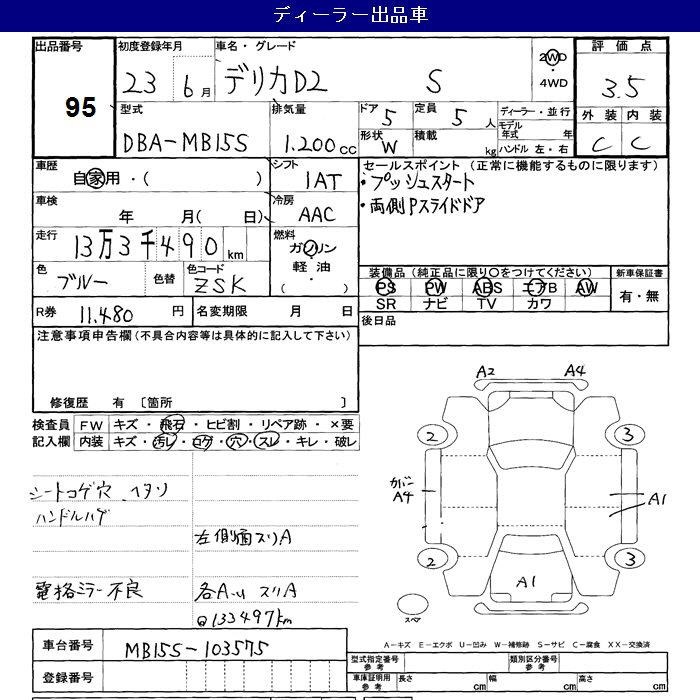 ディーラー出品車
出品番号
95
初度登録年月
23 6月
車名・グレード
デリカD2 S
2WD
・
4WD
評価点
3.5
型式
DBA-MB15S
排気量
1.200cc
ドア 5
定員 5人
ディーラー・並行
モデル年式 年
形状 W
積載 kg
ハンドル 左・右
外装 内装
C C
車歴
自家用・( )
シフト
1AT
セールスポイント(正常に機能するものに限ります)
・プッシュスタート
・両側Pスライドドア
車検
年 月( 日)
冷房
AAC
走行
13万3千490km
燃料
ガソリン
・
軽油
( )
色
ブルー
色替
色コード
ZSK
装備品(純正品に限り○をつけてください)
PS PW ABS エアB AW
SR ナビ TV カワ
新車保証書
有・無
R券 11.480円
名変期限 月 日
後日品
注意事項申告欄(不具合内容等は具体的に記入して下さい)
修復歴 有〔箇所 〕
検査員
記入欄
FW キズ・飛石・ヒビ割・リペア跡・×要
内装 キズ・汚レ・コゲ・穴・スレ・キレ・破レ
シートコゲ穴 ヘタリ
ハンドルハゲ
左側面スリA
電格ミラー不良
各A.u スリA
133497km
A2 A4
2 3
カバー
A4
A1
2 3
A1
スペア
車台番号 MB15S-103575
登録番号
A-キズ E-エクボ U-凹み W-補修跡 S-サビ C-腐食 XX-交換済
型式指定番号
参考
類別区分番号
参考
車庫証明用
参考
長さ cm 幅 cm 高さ cm